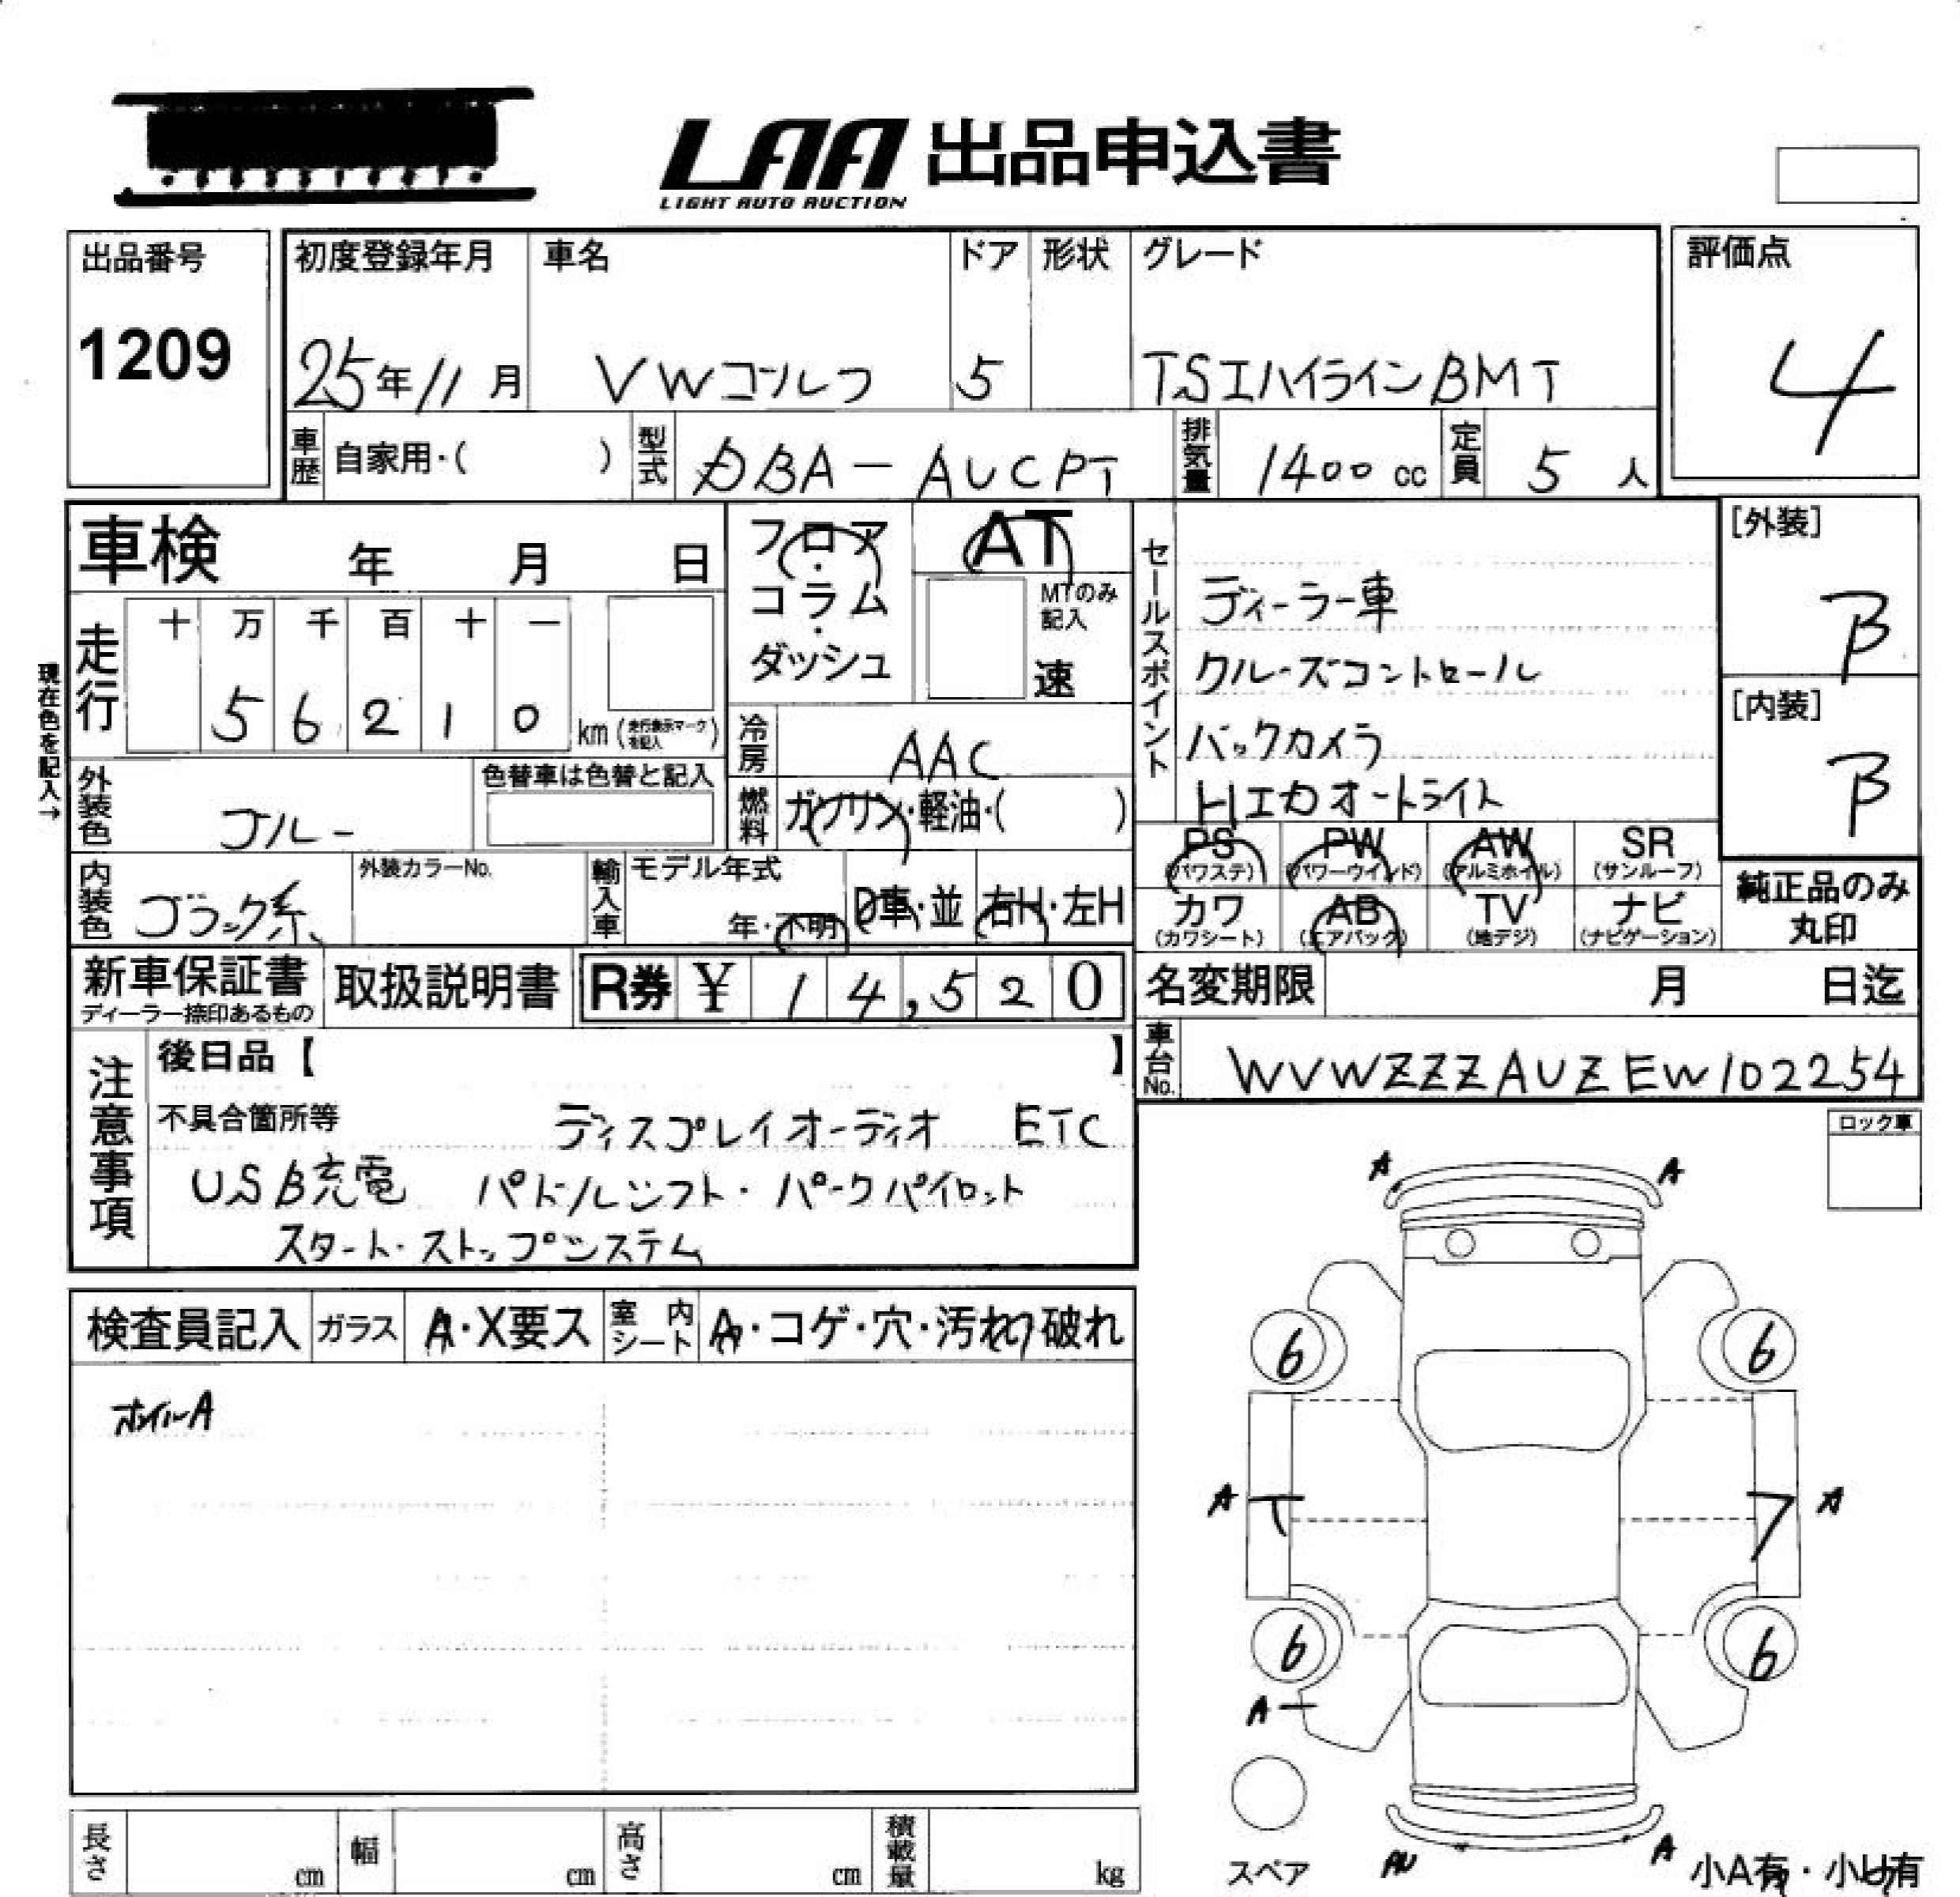 LAA 出品申込書
LIGHT AUTO AUCTION
出品番号
1209
初度登録年月 車名 ドア 形状 グレード
25年11月 VWゴルフ 5 TSIハイラインBMT
評価点
4
車歴 自家用・( ) 型式 DBA-AUCPT 排気量 1400 cc 定員 5 人
車検 年 月 日
フロア・コラム・ダッシュ
AT
MTのみ記入
速
走行 十 万 千 百 十 一
5 6 2 1 0 km (走行表示マークを記入)
現在色を記入→
冷房 AAC
燃料 ガソリン・軽油・( )
外装色 ブルー
色替車は色替と記入
内装色 ブラック系
外装カラーNo.
輸入車 モデル年式
年・不明 D車・並 右H・左H
セールスポイント
ディーラー車
クルーズコントロール
バックカメラ
Hエカ オートライト
[外装]
B
[内装]
B
PS (パワステ) PW (パワーウインド) AW (アルミホイル) SR (サンルーフ)
カワ (カワシート) AB (エアバック) TV (地デジ) ナビ (ナビゲーション)
純正品のみ丸印
新車保証書
ディーラー捺印あるもの
取扱説明書
R券 ¥ 14,520
名変期限 月 日迄
車台No. WVWZZZAUZEW102254
注意事項
後日品【 】
不具合箇所等 ディスプレイオーディオ ETC
USB充電 パドルシフト・パークパイロット
スタート・ストップシステム
ロック車
検査員記入 ガラス A・X要ス 室内シート A・コゲ・穴・汚れ・破れ
ホイルA
A A
6 6
A A
6 6
A
スペア
A
小A有・小U有
長さ cm 幅 cm 高さ cm 積載量 kg